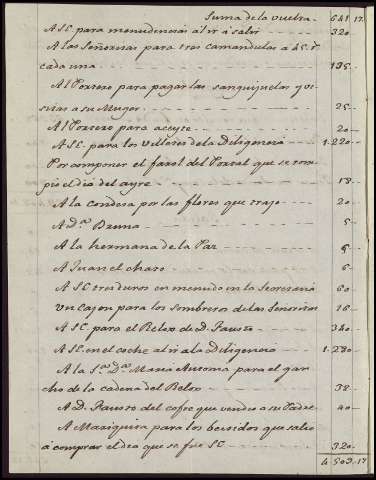 Suma de la vuelta - 641 17
A S.E. para menudencias al ir a salir - - - 320
A las Señoritas para tres camandulas a 45 r.
cada una - - - 135
Al Portero para pagar las sanguijuelas y vi-
sitas a su Muger - - - 25
Al Portero para aceyte - - - 20
A S.E. para los villetes de la Diligencia - 1.220
Por componer el farol del Portal que se rom-
pio el dia del ayre - - - 18
A la Condesa por las flores que trajo - - 20
A D.ª Bruna - - - 5
A la hermana de la Paz - - - 6
A Juan el chato - - - 6
A S.E. tres duros en menudo en la Secretaria 60
Un Cajon para los sombreros de las Señoritas 16
A S.E. para el Relox de D. Fausto - - - 340
A S.E. en el coche al ir a la Diligencia - 1.280
A la S.ª D.ª Maria Antonia para el gan-
cho de la cadena del Relox - - - 38
A D. Fausto del cofre que vendio a su Padre 40
A Mariquita para los vestidos que salio
a comprar el dia que se fue S.E. - - - 320
4 509 17